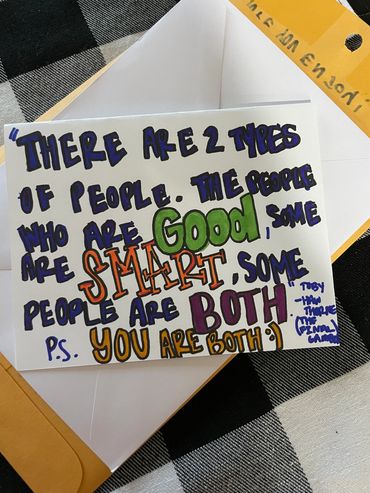 "THERE ARE 2 TYPES
OF PEOPLE. THE PEOPLE
WHO ARE GOOD, SOME
ARE SMART, SOME
PEOPLE ARE BOTH."
TOBY
-HAWTHORNE
(THE
GAMES)
P.S. YOU ARE BOTH :)